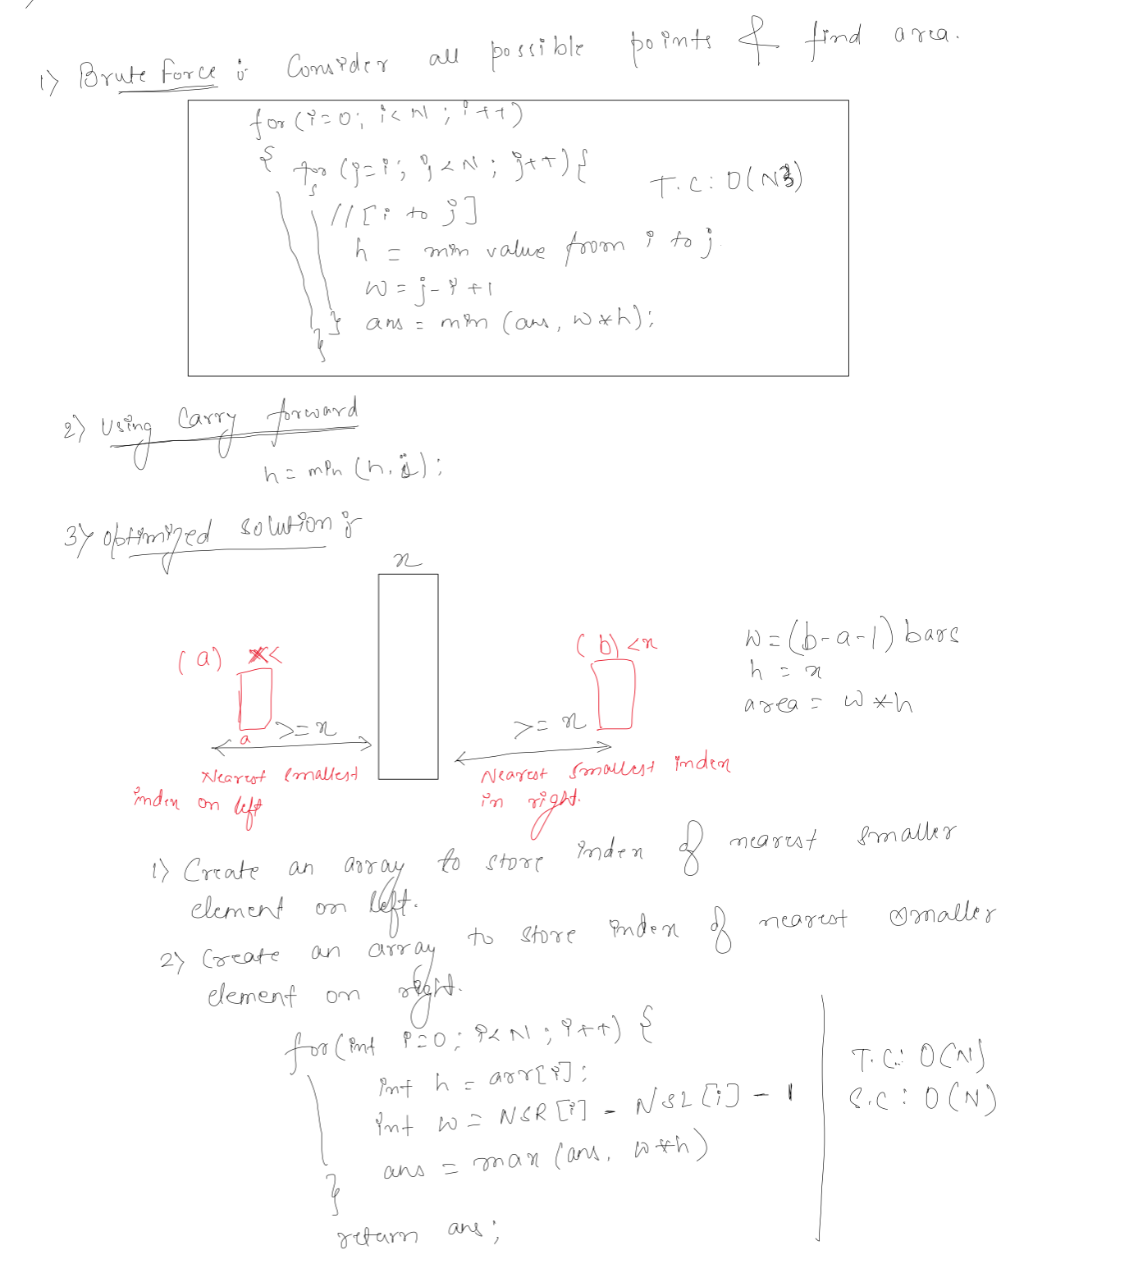 1) Brute Force : Consider all possible points & find area.
for (i=0; i<N ; i++)
{ for (j=i; j<N ; j++) {
T.C : O(N3)
// [i to j]
h = min value from i to j
w = j-i+1
} ans = min (ans, w*h);
}
2) Using Carry forward
h = min (h, j);
3) optimized solution :
x
(a) x<
(b) <x
w = (b-a-1) bars
h = x
area = w*h
a
>= x
>= x
Nearest smallest
index on left
Nearest smallest index
in right.
1) Create an array to store index of nearest smaller
element on left.
2) Create an array to store index of nearest smaller
element on right.
for (int i=0; i<N ; i++) {
int h = arr[i];
int w = NSR[i] - NSL[i] - 1
ans = max (ans, w*h)
}
return ans;
T.C: O(N)
S.C : O(N)